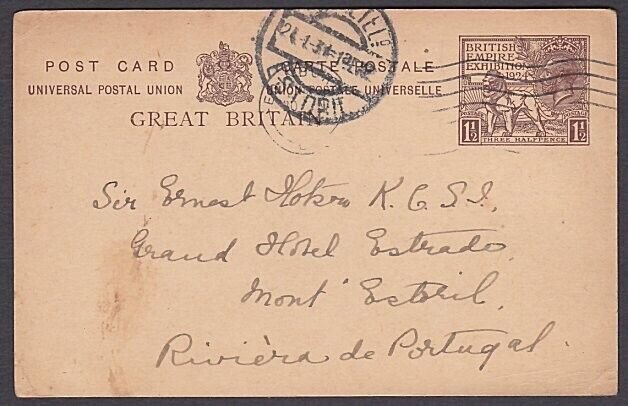 POST CARD CARTE POSTALE
UNIVERSAL POSTAL UNION UNION POSTALE UNIVERSELLE
GREAT BRITAIN
BRITISH
EMPIRE
EXHIBITION
1924
POSTAGE
1½ 1½
THREE HALFPENCE
Sir Ernest Hotson K.C.S.I,
Grand Hotel Estrade,
Mont' Estoril,
Rivièra de Portugal.